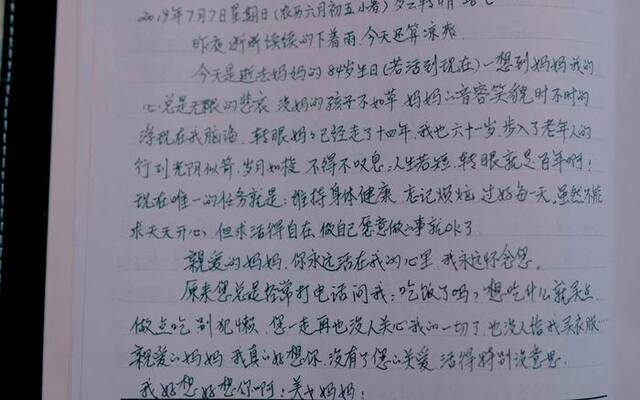 2019年7月7日星期日(农历六月初五小暑) 多云转晴 28℃
昨夜断断续续的下着雨,今天还算凉爽
今天是逝去妈妈的84岁生日(若活到现在)一想到妈妈我的
心总是无限的悲哀 没妈的孩子不如草 妈妈的音容笑貌时不时的
浮现在我脑海,转眼妈妈已经走了十四年,我也六十一岁 步入了老年人的
行列 光阴似箭,岁月如梭,不得不叹息:人生苦短,转眼就是百年啊!
现在唯一的任务就是:维持身体健康,忘记烦恼,过好每一天,虽然不能
求天天开心,但求活得自在,做自己愿意做的事就OK了
亲爱的妈妈,你永远活在我的心里,我永远怀念您。
原来您总是经常打电话问我:吃饭了吗?想吃什么就买点
做点吃 别犯懒,您一走再也没人关心我的一切了,也没人给我买衣服
亲爱的妈妈 我真的好想你,没有了您的关爱 活得特别没意思
我好想好想你啊!美女妈妈!